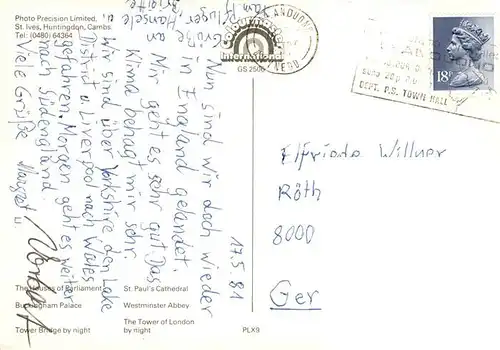 Photo Precision Limited,
St. Ives, Huntingdon, Cambs.
Tel: (0480) 64364
International
GS 2506
18P
DEPT. P.S. TOWN HALL
17.5.81
Nun sind wir doch wieder
in England gelandet.
Mir geht es sehr gut. Das
Klima behagt mir sehr.
Wir sind über Yorkshire den Lake
District u. Liverpool nach Wales
gefahren. Morgen geht es weiter
nach Südengland.
Viele Grüße Margret u.
Grüße an
Hansele u.
Brigitte.
Elfriede Willner
Röth
8000
Ger
The Houses of Parliament
Buckingham Palace
Tower Bridge by night
St. Paul's Cathedral
Westminster Abbey
The Tower of London
by night
PLX9